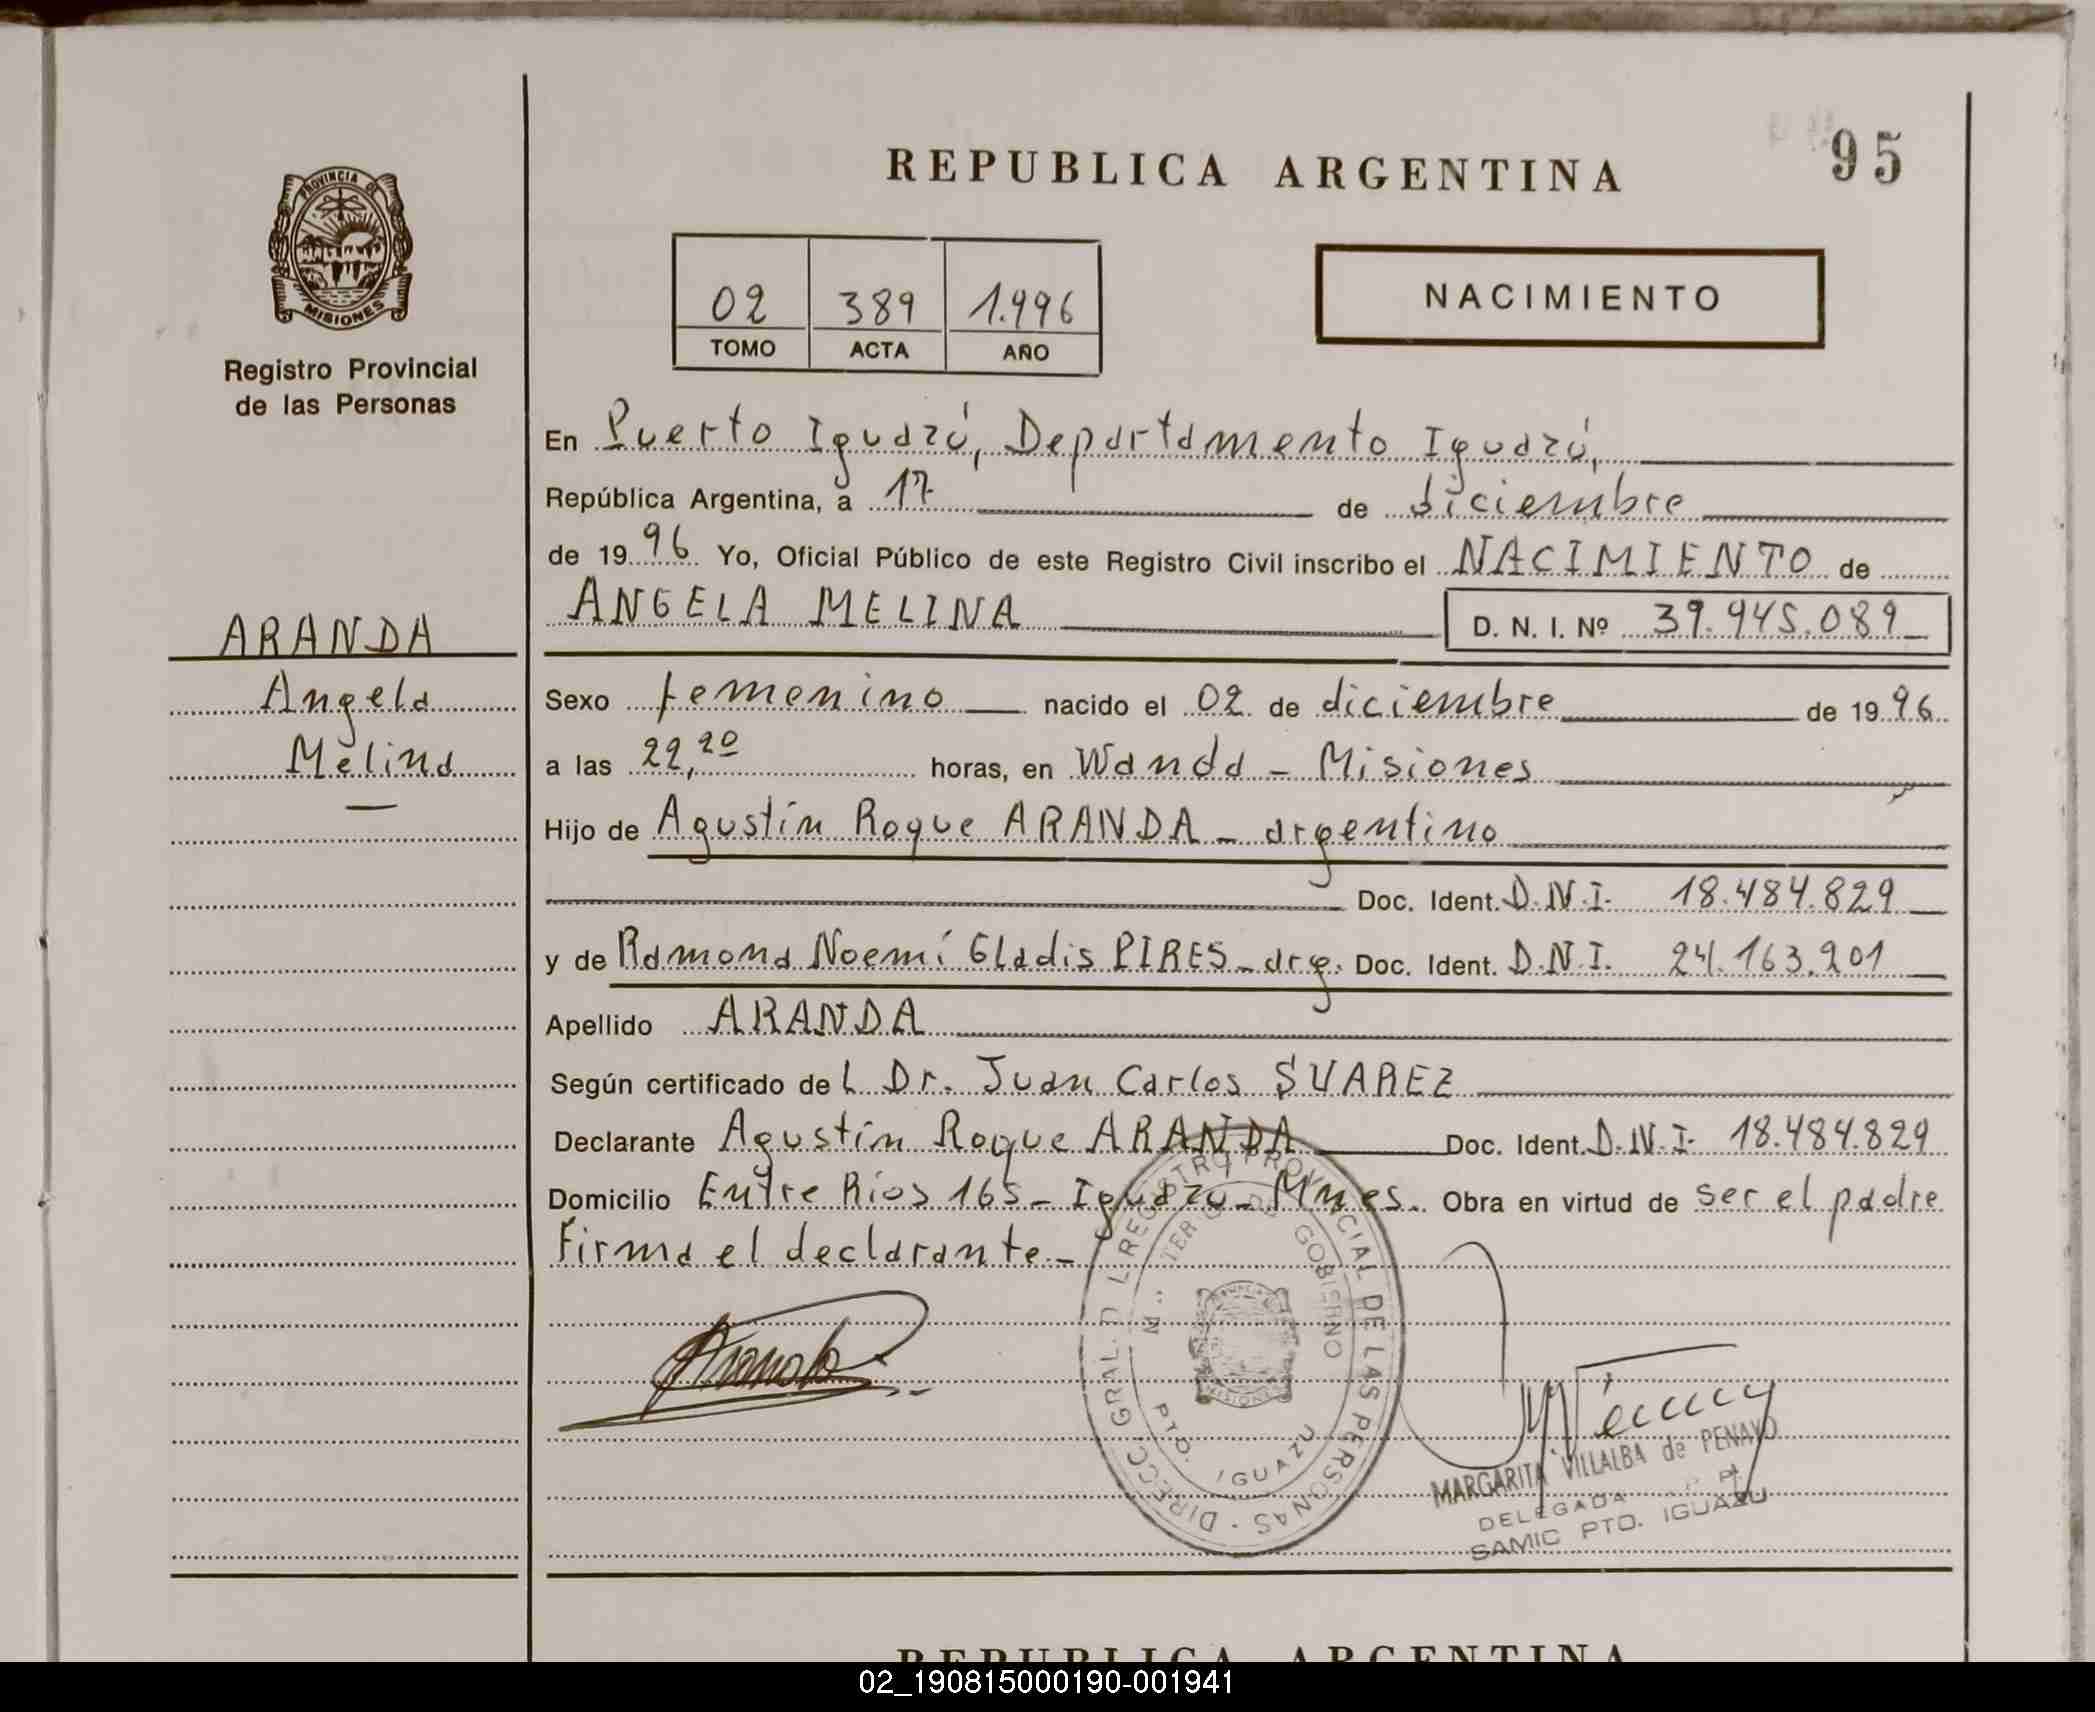 REPUBLICA ARGENTINA
95
PROVINCIA DE
MISIONES
Registro Provincial
de las Personas
02 389 1.996
TOMO ACTA AÑO
NACIMIENTO
En Puerto Iguazú, Departamento Iguazú,
República Argentina, a 17 de diciembre
de 1996 Yo, Oficial Público de este Registro Civil inscribo el NACIMIENTO de
ANGELA MELINA D. N. I. Nº 39.945.089
ARANDA
Angela
Melina
Sexo femenino nacido el 02 de diciembre de 1996
a las 22,20 horas, en Wanda - Misiones
Hijo de Agustín Roque ARANDA - argentino
Doc. Ident. D.N.I. 18.484.829
y de Ramona Noemí Gladis PIRES - arg. Doc. Ident. D.N.I. 24.163.201
Apellido ARANDA
Según certificado del Dr. Juan Carlos SUAREZ
Declarante Agustín Roque ARANDA Doc. Ident. D.N.I. 18.484.829
Domicilio Entre Ríos 165 - Iguazú - Mnes. Obra en virtud de ser el padre
Firma el declarante.-
DIRECC. GRAL. DEL REGISTRO PROVINCIAL DE LAS PERSONAS
GOBIERNO
PTO. IGUAZU
MISIONES
Aranda
MARGARITA VILLALBA de PENAYO
DELEGADA
SAMIC PTO. IGUAZU
REPUBLICA ARGENTINA
02_190815000190-001941